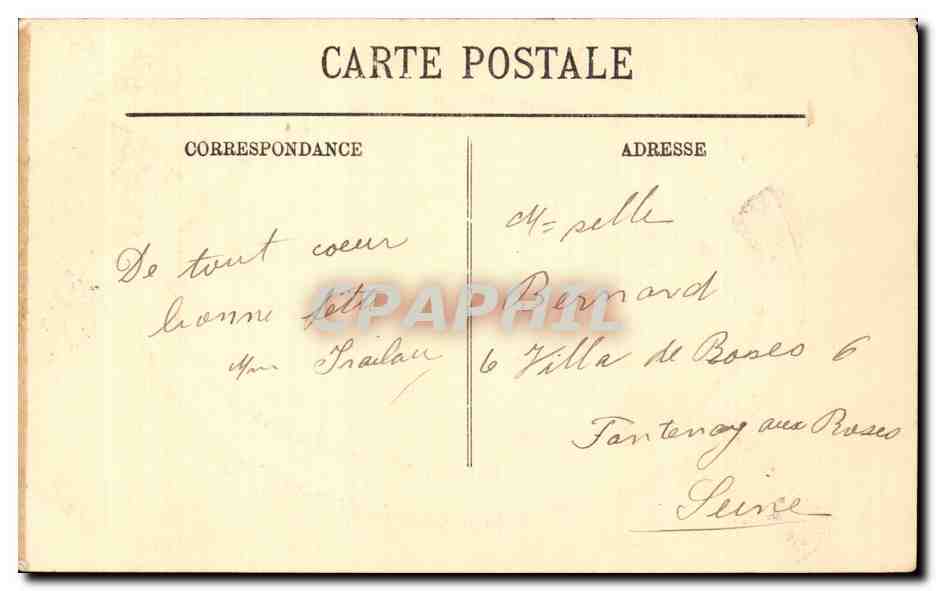 CARTE POSTALE
CORRESPONDANCE
De tout coeur
bonne fête
Mme
ADRESSE
Melle
Bernard
6 Villa de Roses 6
Fontenay aux Roses
Seine
CPAPHIL